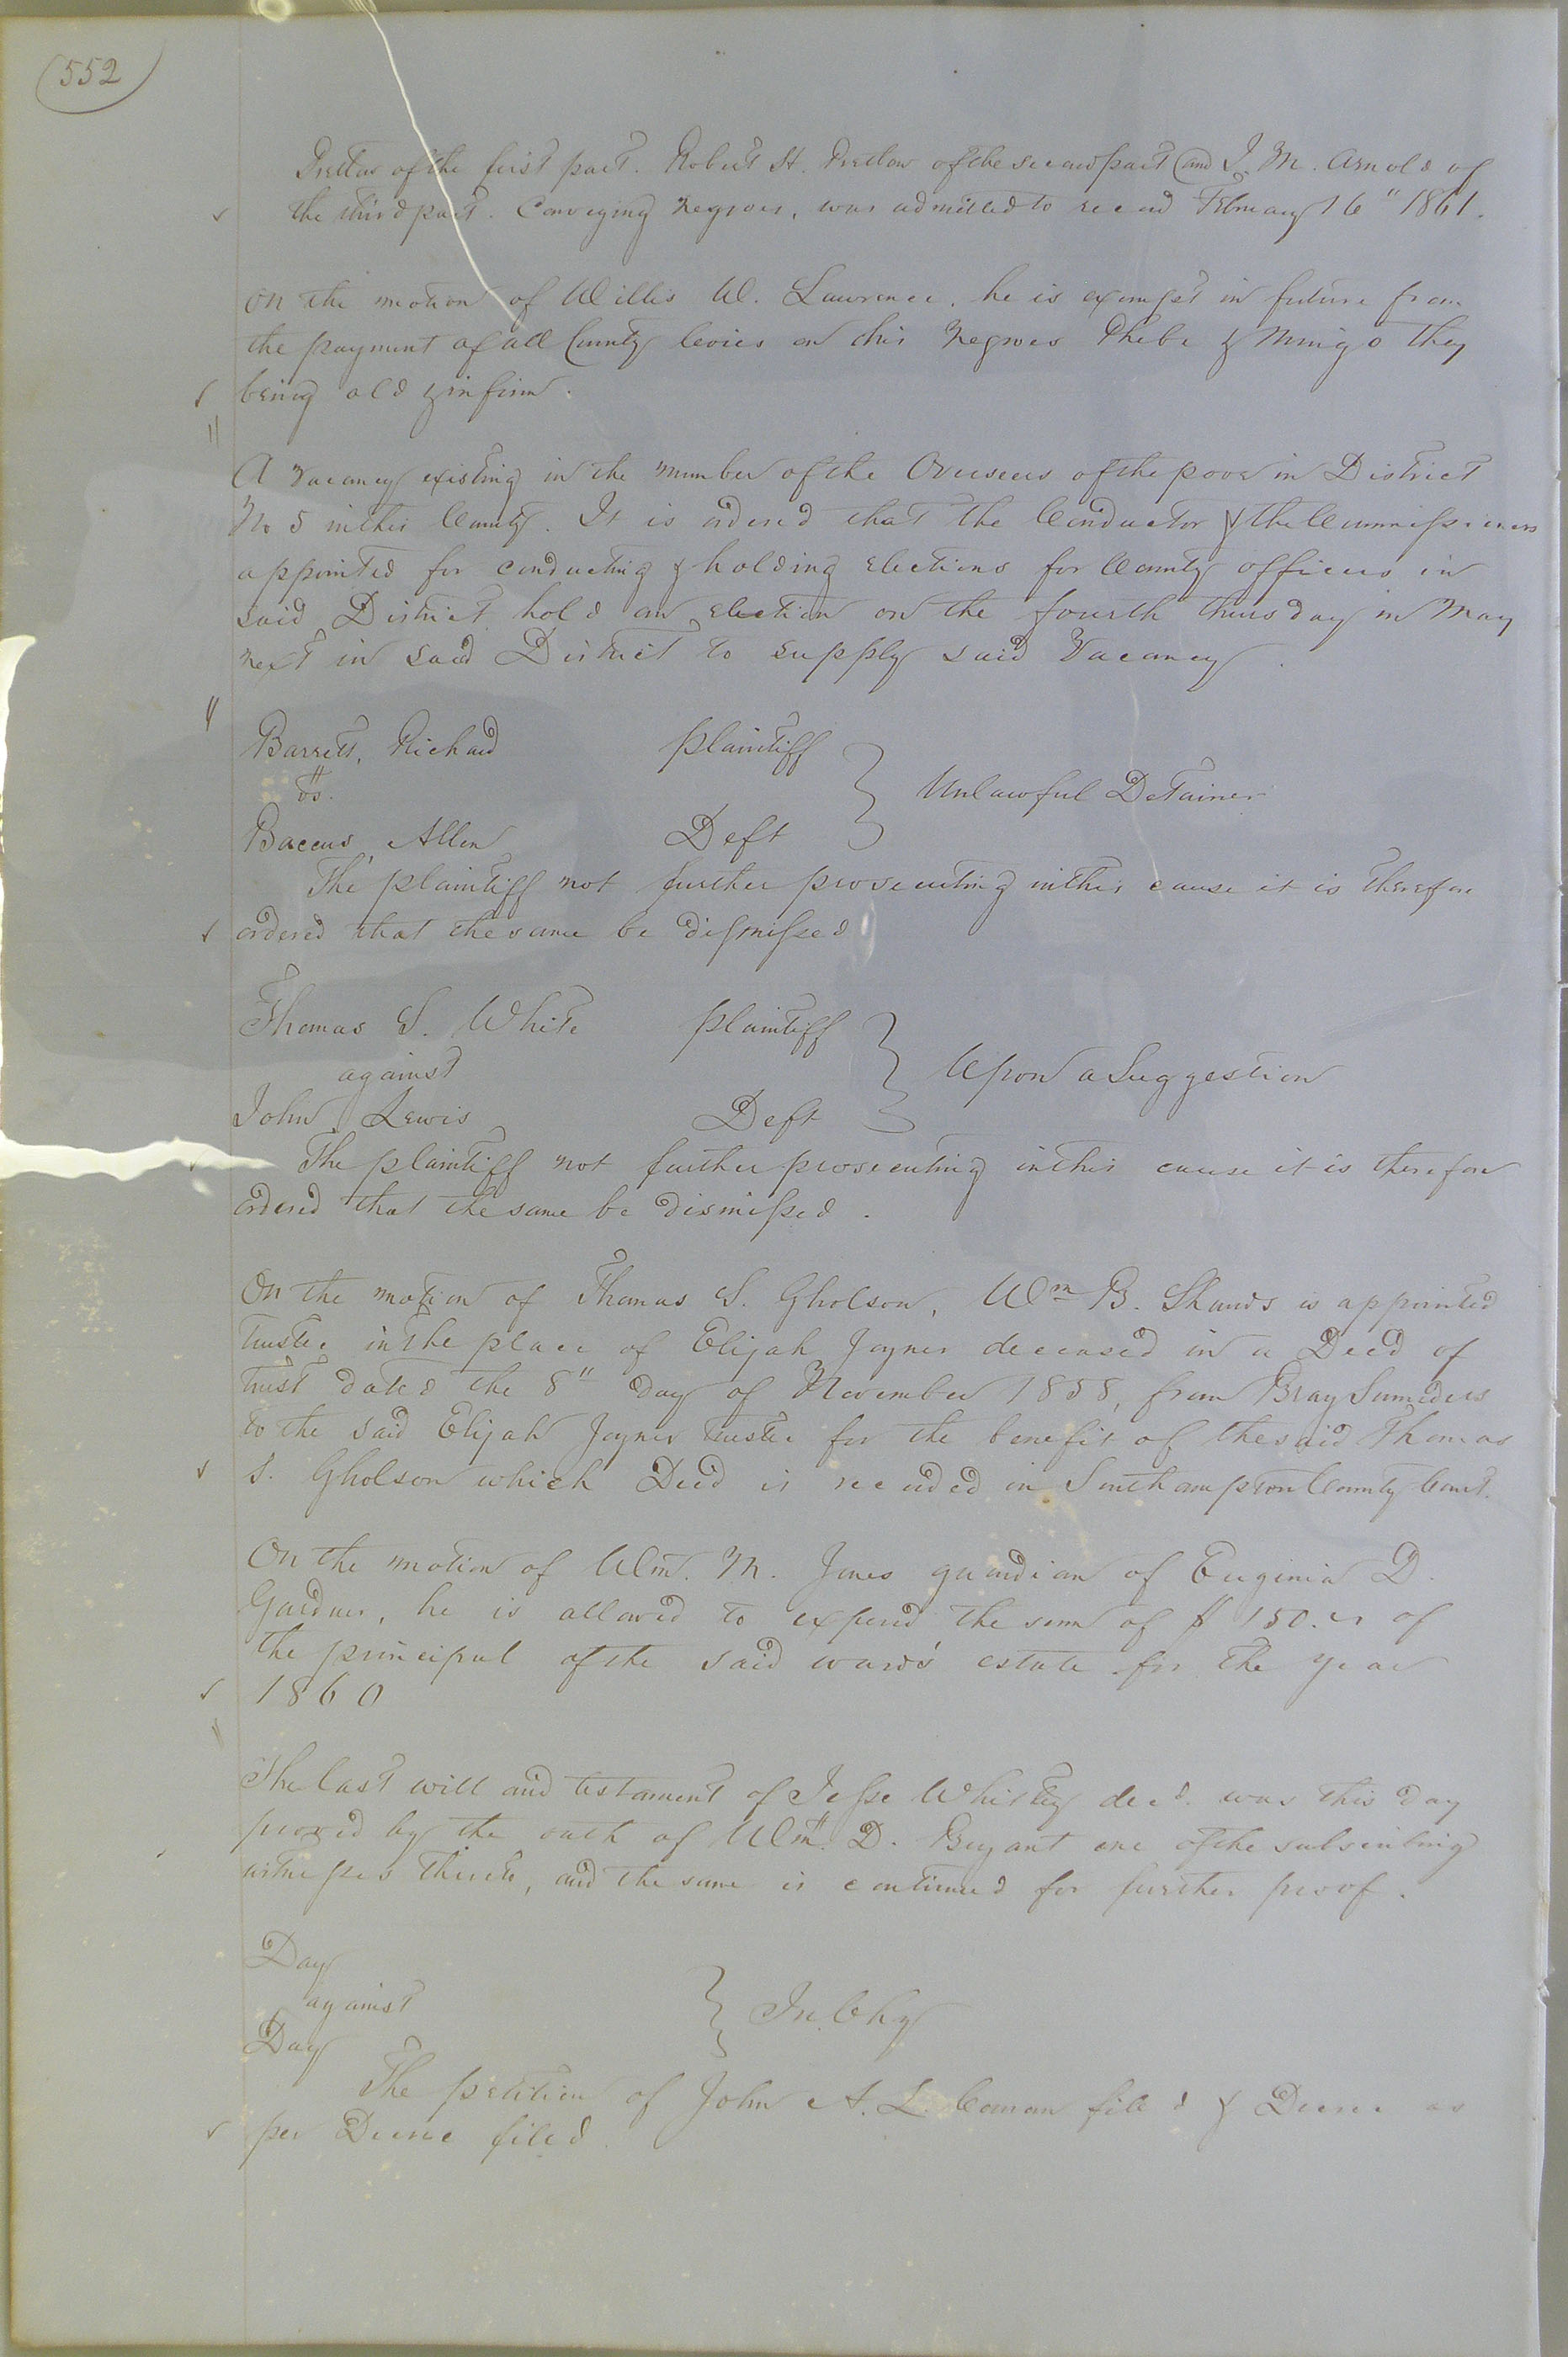 552
Pretlow of the first part. Robert H. Pretlow of the second part and J. M. Arnold of
the third part. Conveying Negroes, was admitted to record February 16" 1861.
On the motion of Willis W. Lawrence, he is exempt in future from
the payment of all County levies on his Negroes Phebe & Mingo they
being old & infirm.
A Vacancy existing in the number of the Overseers of the poor in District
No 5 in this County. It is ordered that the Conductor & the Commissioners
appointed for conducting & holding elections for County officers in
said District hold an election on the fourth thursday in May
next in said District to supply said Vacancy.
Barrett, Richard plaintiff
vs. } Unlawful Detainer
Baccus, Allen Deft
The plaintiff not further prosecuting in this cause it is therefore
ordered that the same be dismissed
Thomas S. White plaintiff
against } Upon a Suggestion
John Lewis Deft
The plaintiff not further prosecuting in this cause it is therefore
ordered that the same be dismissed.
On the motion of Thomas S. Gholson, Wm B. Shands is appointed
Trustee in the place of Elijah Joyner deceased in a Deed of
trust dated the 8" day of November 1858, from Bray
to the said Elijah Joyner trustee for the benefit of the said Thomas
S. Gholson which Deed is recorded in Southampton County Court.
On the motion of Wm. M. Jones guardian of Euginia D.
Gardner, he is allowed to expend the sum of $ 150. of
the principal of the said wards' estate for the year
1860
The last will and testament of Jesse Whitley decd. was this day
proved by the oath of Wm. D. Bryant one of the subscribing
witnesses thereto, and the same is continued for further proof.
Day
against } In Chy
Day
The petition of John A. L. Coman filed & Decree as
per Decree filed.